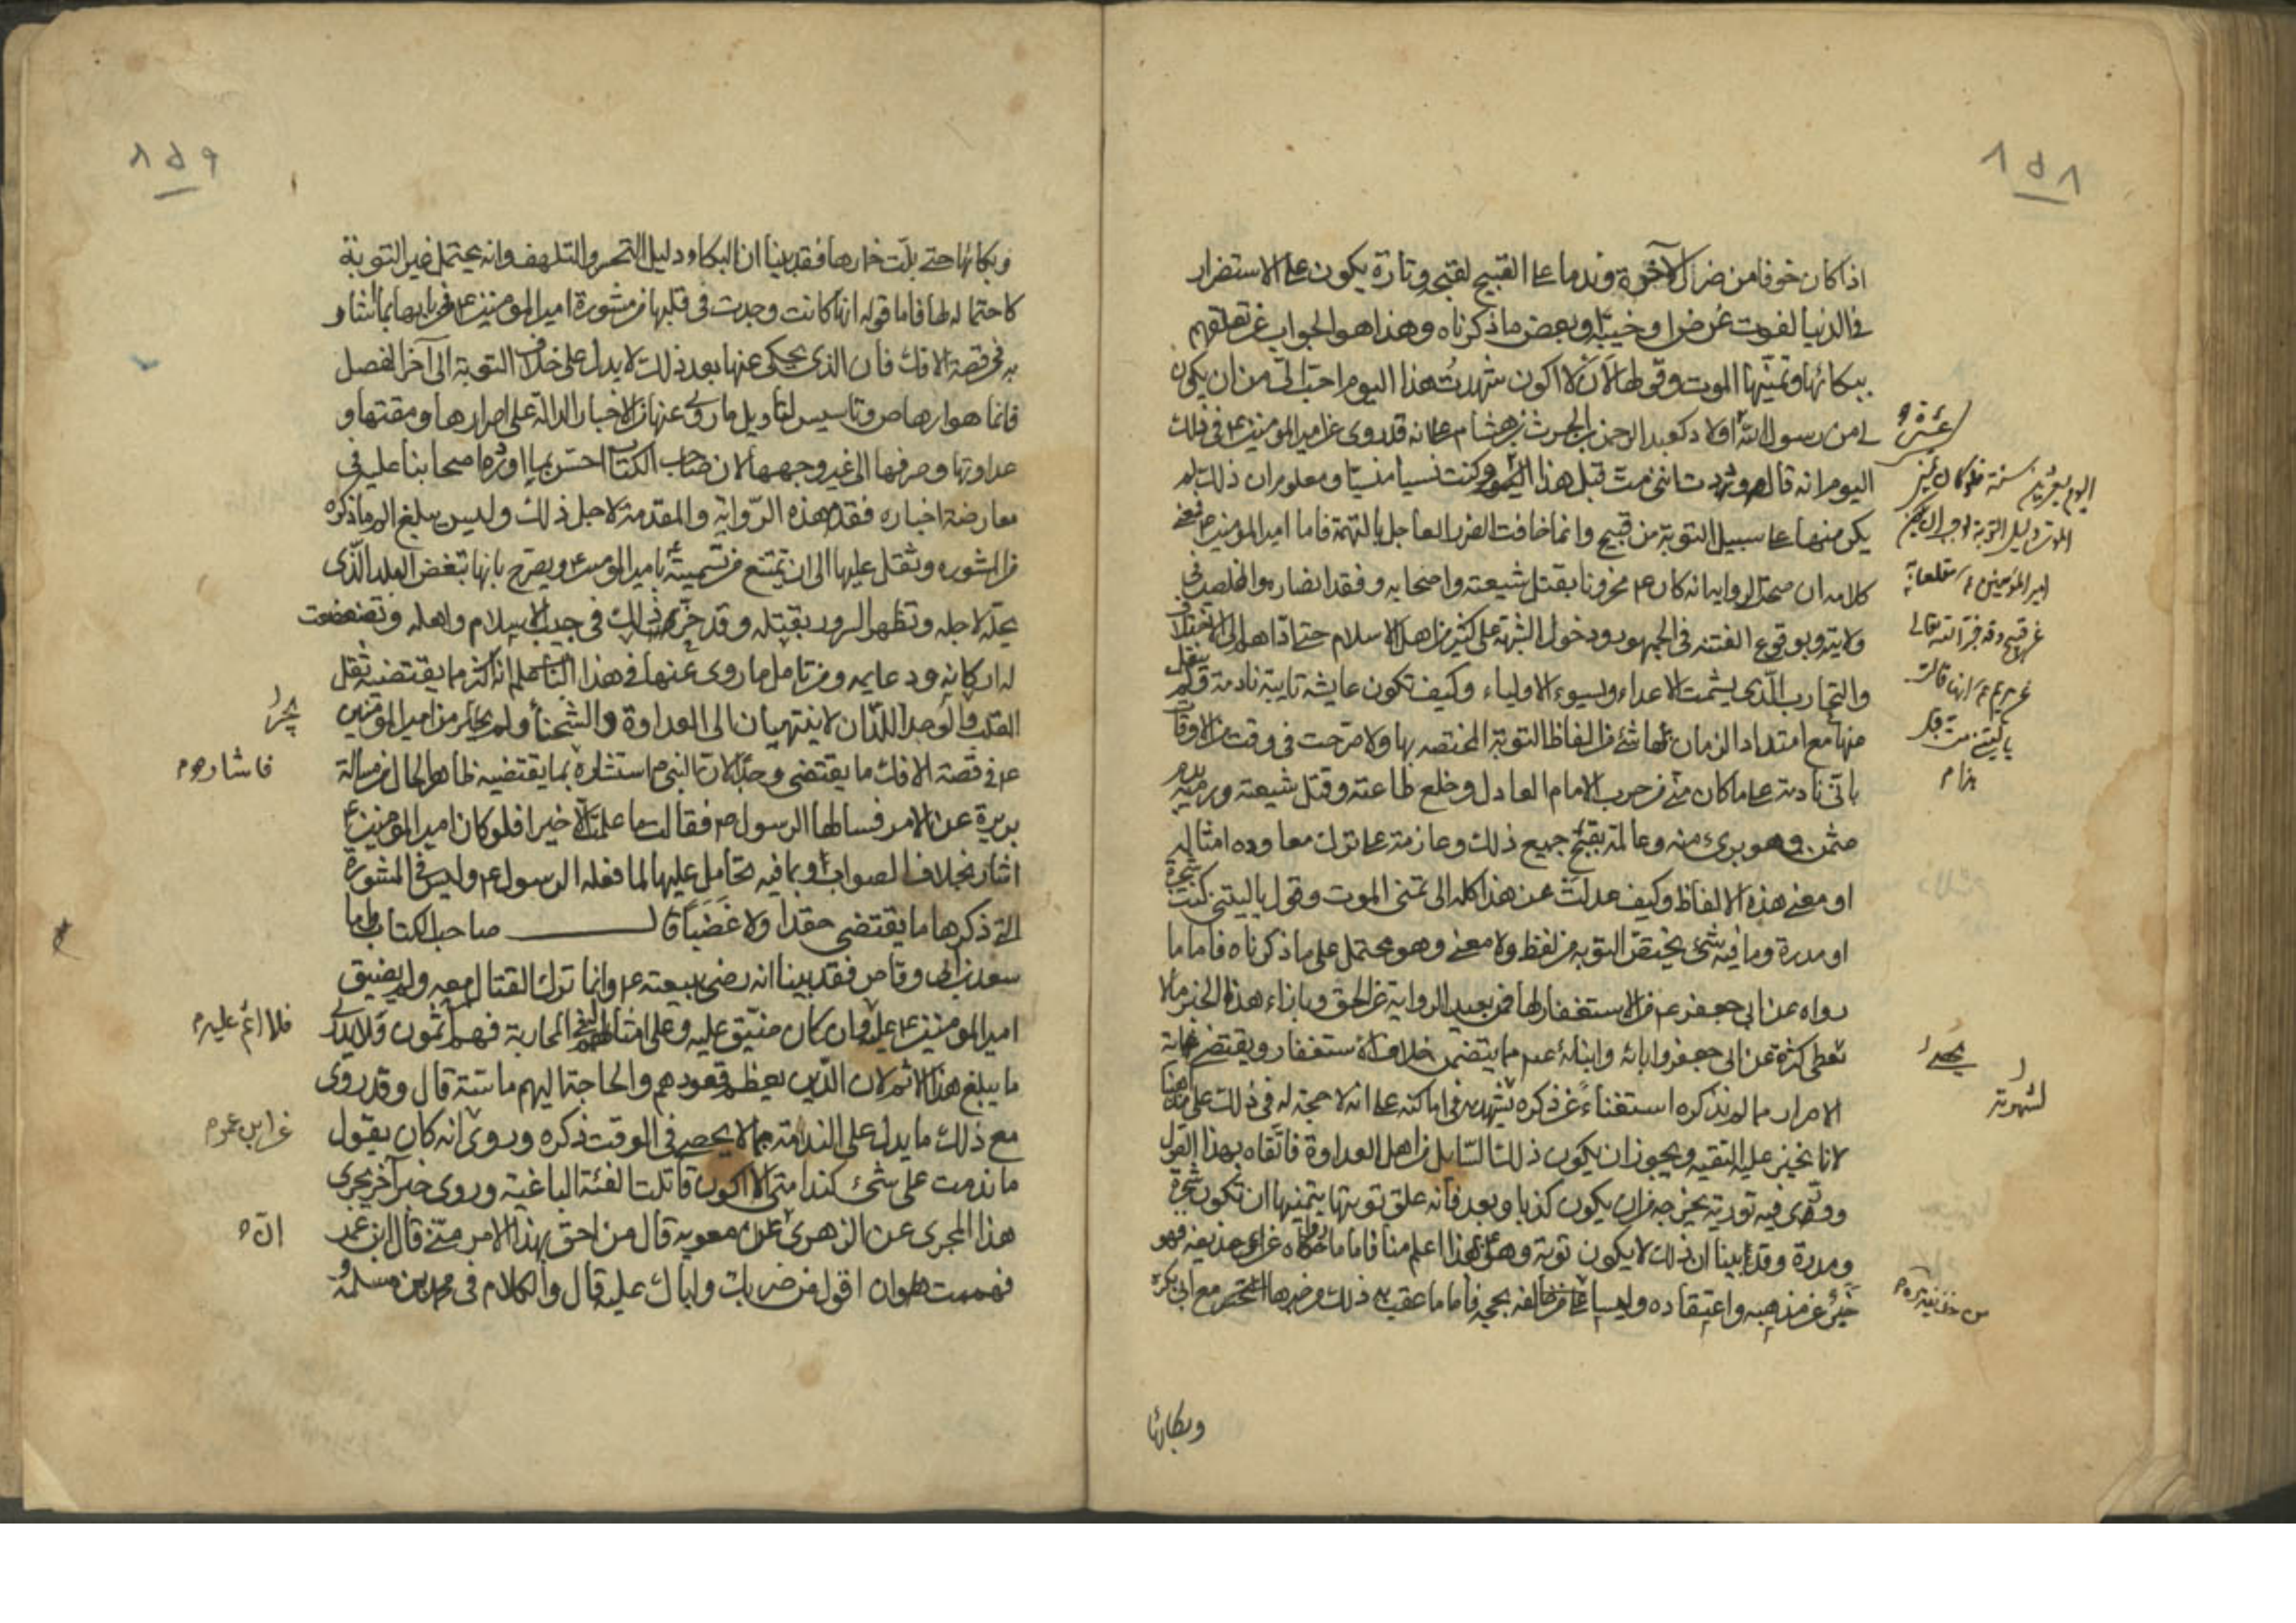 ٨٥٨
اذا كان خوفا من ضرار الآخرة وندما على القبيح لقبحه وتارة يكون على الاستضرار
في الدنيا لفوت غرض او خيبة وبعض ما ذكرناه وهذا هو الجواب عن تعلقهم
ببكائها وتمنيها الموت وقولها لأن لا اكون شهدت هذا اليوم احب الى من ان يكون
لى من رسول الله اولاد كعبد الرحمن بن الحرث بن هشام على انه قد روى عن امير المؤمنين ع في ذلك
اليوم انه قال وددت اننى مت قبل هذا اليوم وكنت نسيا منسيا ومعلوم ان ذلك لم
يكن منها على سبيل التوبة من قبيح وانما خافت الضرر العاجل بالتهمة فاما امير المؤمنين ع فمعنى
كلامه ان صحت الرواية انه كان ع محزونا بقتل شيعته واصحابه وفقد انصاره والخلص في
ولايته وبوقوع الفتنة في الجمهور ودخول الشبهة على كثير من اهل الاسلام حتى اداهم الى
والتحارب الذى يشمت الاعداء ويسوء الاولياء وكيف تكون عايشة تايبة نادمة ولم ينقل
منها مع امتداد الزمان بها شئ من الفاظ التوبة المختصة بها ولا صرحت في وقت من الاوقات
باني نادمة على ما كان منى من حرب الامام العادل وخلع طاعته وقتل شيعته ورميه بدم
عثمن وهو برىء منه وعالمة بقبح جميع ذلك وعازمة على ترك معاودة امثاله
او معنى هذه الالفاظ وكيف عدلت عن هذا كله الى تمنى الموت وقول ياليتنى كنت شجرة
او مدرة وما فيه شئ يختص التوبة من لفظ ولا معنى وهو محتمل على ما ذكرناه فاما ما
رواه عن ابى جعفر ع من الاستغفار لها فمن بعيد الرواية عن الحق وبازاء هذا الخبر ما لا
تحصى كثرة عن ابى جعفر وابائه وابنائه عم مما يتضمن خلاف الاستغفار ويقتضى غاية
الاصرار مما لم نذكره استغناء عن ذكره بشهرته في اماكنه على انه لا حجة له في ذلك على مذاهبنا
لانا نجيز عليه التقية ويجوز ان يكون ذلك السايل من اهل العداوة فاتقاه بهذا القول
وورى فيه تورية يخرجه من ان يكون كذبا وبعد فانه علق توبتها بتمنيها ان تكون شجرة
ومدرة وقد بينا ان ذلك لا يكون توبة وهو بهذا اعلم منا فاما ما رواه عن ابن حذيفة فهو
خبر عن مذهبه واعتقاده وليس على من خالفه بحجة فاما ما عقب به ذلك من خبرها المختصر مع ابى بكرة
عشرة
اليوم بعشرين سنة فلو كان تمنى
الموت دليل التوبة لوجب ان يكون
امير المؤمنين ع
عن قبيح وقد خبر الله تعالى
عن مريم ع انها قالت
ياليتنى مت قبل
هذا م
يحصى
لشهرته
وبكائها
٨٥٩
وبكائها حتى بلت خمارها فقد بينا ان البكاء دليل التحسر والتلهف وانه يحتمل غير التوبة
كاحتماله لها فاما قوله انها كانت وجدت في قلبها من مشورة امير المؤمنين ع في بابها بما اشار
به في قصة الافك فان الذى يحكى عنها بعد ذلك لا يدل على خلاف التوبة الى آخر الفصل
فانما هو ارهاص وتاسيس لتاويل ما روى عنها من الاخبار الدالة على اصرارها ومقتها و
عداوتها وصرفها الى غير وجهها لان صاحب الكتاب احس بما اورده اصحابنا عليه في
معارضة اخباره فقدم هذه الرواية والمقدمة لاجل ذلك وليس يبلغ الى ما ذكره
من المشورة وثقل عليها الى ان يمتنع من تسمية امير المؤمنين ع ويصرح بانها تبغض البلد الذى
يحله لاجله وتظهر السرور بقتله وقد خرم ذلك في جنب الاسلام واهله وتضعضعت
له اركانه ودعايمه ومن تامل ما روى عنها في هذا الباب علم انه اكثر مما يقتضيه ثقل
القلب والوجد اللذان لا ينتهيان الى العداوة والشحناء ولم يجر من امير المؤمنين
ع في قصة الافك ما يقتضى وجدا لان النبى ص استشاره بما يقتضيه ظاهر الحال من مسالة
بريرة عن الامر فسالها الرسول ص فقالت ما علمت الا خيرا فلو كان امير المؤمنين ع
اشار بخلاف الصواب او بما فيه تحامل عليها لما فعله الرسول ع وليس في المشورة
التى ذكرها ما يقتضى حقدا ولا غضبا قال صاحب الكتاب فاما
سعد بن ابى وقاص فقد بينا انه رضى ببيعته ع وانما ترك القتال معه ولم يضيق
امير المؤمنين ع عليه وان كان مضيق عليه وعلى امثاله المحاربة فهم آثمون ولا يدل
ما يبلغ هذا الاثم لان الذين يعظم قعودهم والحاجة اليهم ماسة قال وقد روى
مع ذلك ما يدل على الندامة مما لا يحصى في الوقت ذكره وروى انه كان يقول
ما ندمت على شئ كندامتى الا اكون قاتلت الفئة الباغية وروى خبر آخر يجرى
هذا المجرى عن الزهرى عن معوية قال من احق بهذا الامر منى قال ابن عمر
فهممت ان اقول من ضربك واباك عليه قال والكلام في محمد بن مسلمة
يجر
فاشار م
فلا اثم عليه م
عن ابن عمر م